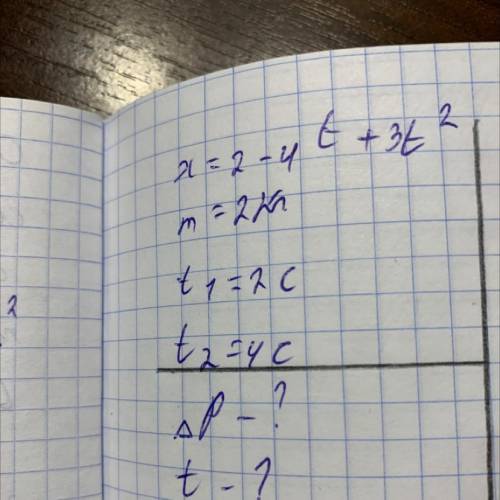 x = 2 - 4t + 3t²
m = 2кг
t₁ = 2 с
t₂ = 4 с
Δp - ?
t - ?
2